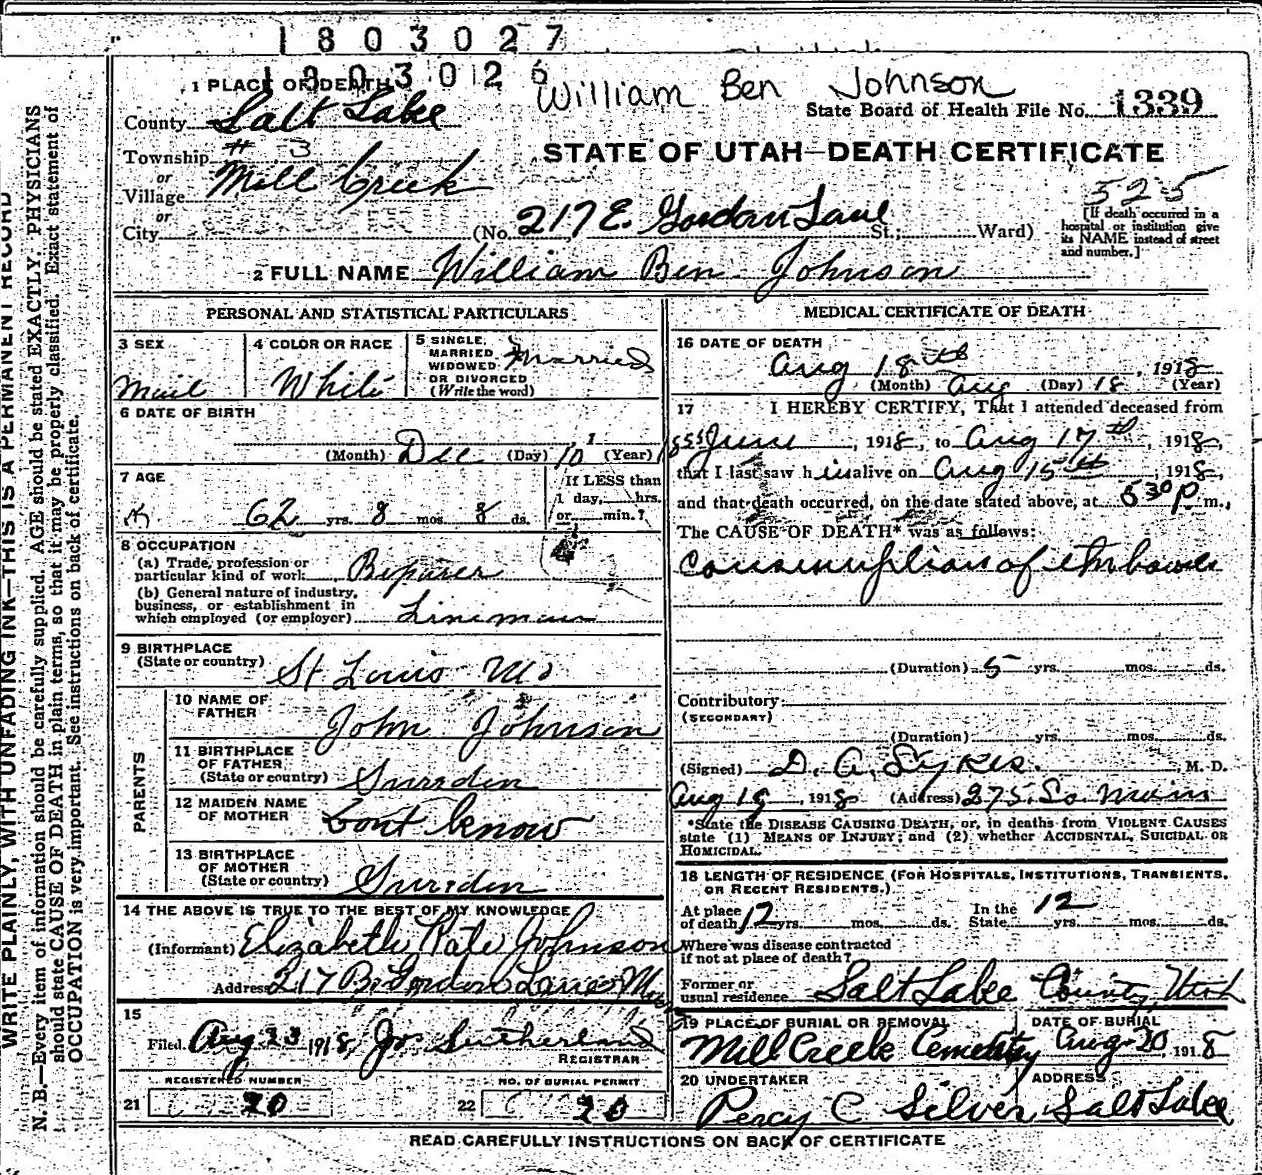 1803027
1803026
William Ben Johnson
1 PLACE OF DEATH
State Board of Health File No. 1339
County Salt Lake
Township # 3
or
Village Mill Creek
or
City
STATE OF UTAH—DEATH CERTIFICATE
525
(No. 217 E. Gordon Lane St.; Ward)
[If death occurred in a
hospital or institution give
its NAME instead of street
and number.]
2 FULL NAME William Ben Johnson
PERSONAL AND STATISTICAL PARTICULARS
3 SEX
Mail
4 COLOR OR RACE
White
5 SINGLE,
MARRIED,
WIDOWED
OR DIVORCED
(Write the word)
Married
6 DATE OF BIRTH
(Month) Dec (Day) 10 (Year) 1855
7 AGE
62 yrs. 8 mos. 8 ds.
If LESS than
1 day, hrs.
or min.?
8 OCCUPATION
(a) Trade, profession or
particular kind of work
(b) General nature of industry,
business, or establishment in
which employed (or employer) Lineman
9 BIRTHPLACE
(State or country) St Louis Mo
PARENTS
10 NAME OF
FATHER John Johnson
11 BIRTHPLACE
OF FATHER
(State or country) Sweeden
12 MAIDEN NAME
OF MOTHER Dont know
13 BIRTHPLACE
OF MOTHER
(State or country) Sweeden
14 THE ABOVE IS TRUE TO THE BEST OF MY KNOWLEDGE
(Informant) Elizabeth Kate Johnson
Address 217 Gordon Lane
15
Filed Aug 23 1918, Jos Sutherland
REGISTRAR
REGISTERED NUMBER
21 20
NO. OF BURIAL PERMIT
22 20
MEDICAL CERTIFICATE OF DEATH
16 DATE OF DEATH
Aug 18th, 1918
(Month) Aug (Day) 18 (Year)
17 I HEREBY CERTIFY, That I attended deceased from
June, 1918, to Aug 17th, 1918,
that I last saw him alive on Aug 15th, 1918,
and that death occurred, on the date stated above, at 530 P m.,
The CAUSE OF DEATH* was as follows:
Consumption of the bowels
(Duration) 5 yrs. mos. ds.
Contributory
(SECONDARY)
(Duration) yrs. mos. ds.
(Signed) D. A. Sykes. M. D.
Aug 19, 1918 (Address) 275 So. Main
*State the DISEASE CAUSING DEATH, or, in deaths from VIOLENT CAUSES
state (1) MEANS OF INJURY; and (2) whether ACCIDENTAL, SUICIDAL OR
HOMICIDAL.
18 LENGTH OF RESIDENCE (FOR HOSPITALS, INSTITUTIONS, TRANSIENTS,
OR RECENT RESIDENTS.)
At place
of death 12 yrs. mos. ds.
In the
State 12 yrs. mos. ds.
Where was disease contracted
if not at place of death?
Former or
usual residence Salt Lake County, Utah
19 PLACE OF BURIAL OR REMOVAL
Mill Creek Cemetery
DATE OF BURIAL
Aug 20, 1918
20 UNDERTAKER
Percy C Silver
ADDRESS
Salt Lake
READ CAREFULLY INSTRUCTIONS ON BACK OF CERTIFICATE
WRITE PLAINLY, WITH UNFADING INK—THIS IS A PERMANENT RECORD
N. B.—Every item of information should be carefully supplied. AGE should be stated EXACTLY. PHYSICIANS
should state CAUSE OF DEATH in plain terms, so that it may be properly classified. Exact statement of
OCCUPATION is very important. See instructions on back of certificate.